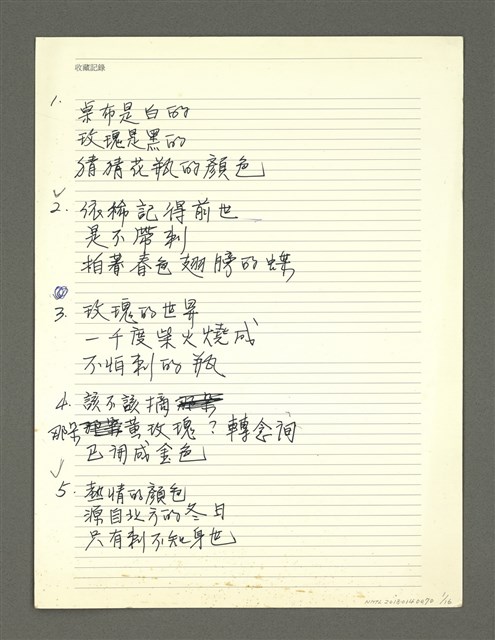 收藏記錄
1. 桌布是白的
玫瑰是黑的
猜猜花瓶的顏色
2. 依稀記得前世
是不帶刺
拍著春色翅膀的蝶
3. 玫瑰的世界
一千度柴火燒成
不怕刺的瓶
4. 該不該摘
那朵黃玫瑰?轉念間
已開成金色
5. 熱情的顏色
源自北方的冬日
只有刺不知身世
1/16